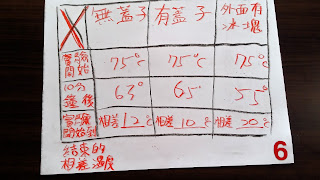 無蓋子 有蓋子 外面有冰塊
實驗開始 75°C 75°C 75°C
10分鐘後 63° 65° 55°
實驗開始到結束的相差溫度 相差12°C 相差10°C 相差20°C
6